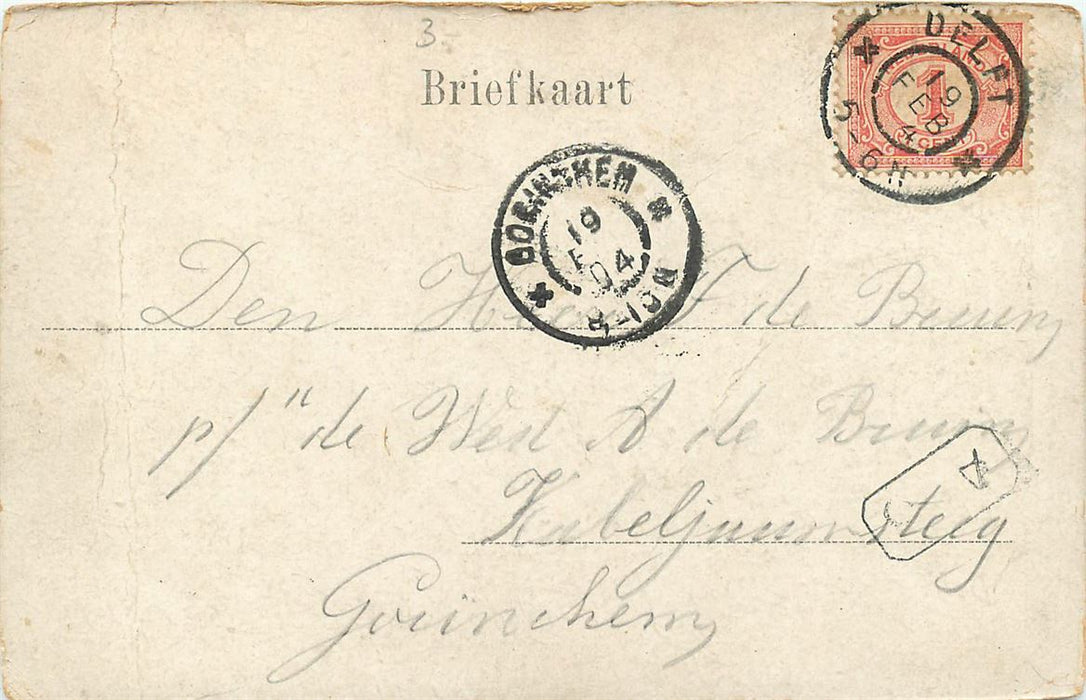 3-
Briefkaart
DELFT
19 FEB 4
5-6N
1
GORINCHEM
19
04
Den de Bruin
p/" de Wed A de Bruin
Kabeljauwsteeg
Gorinchem